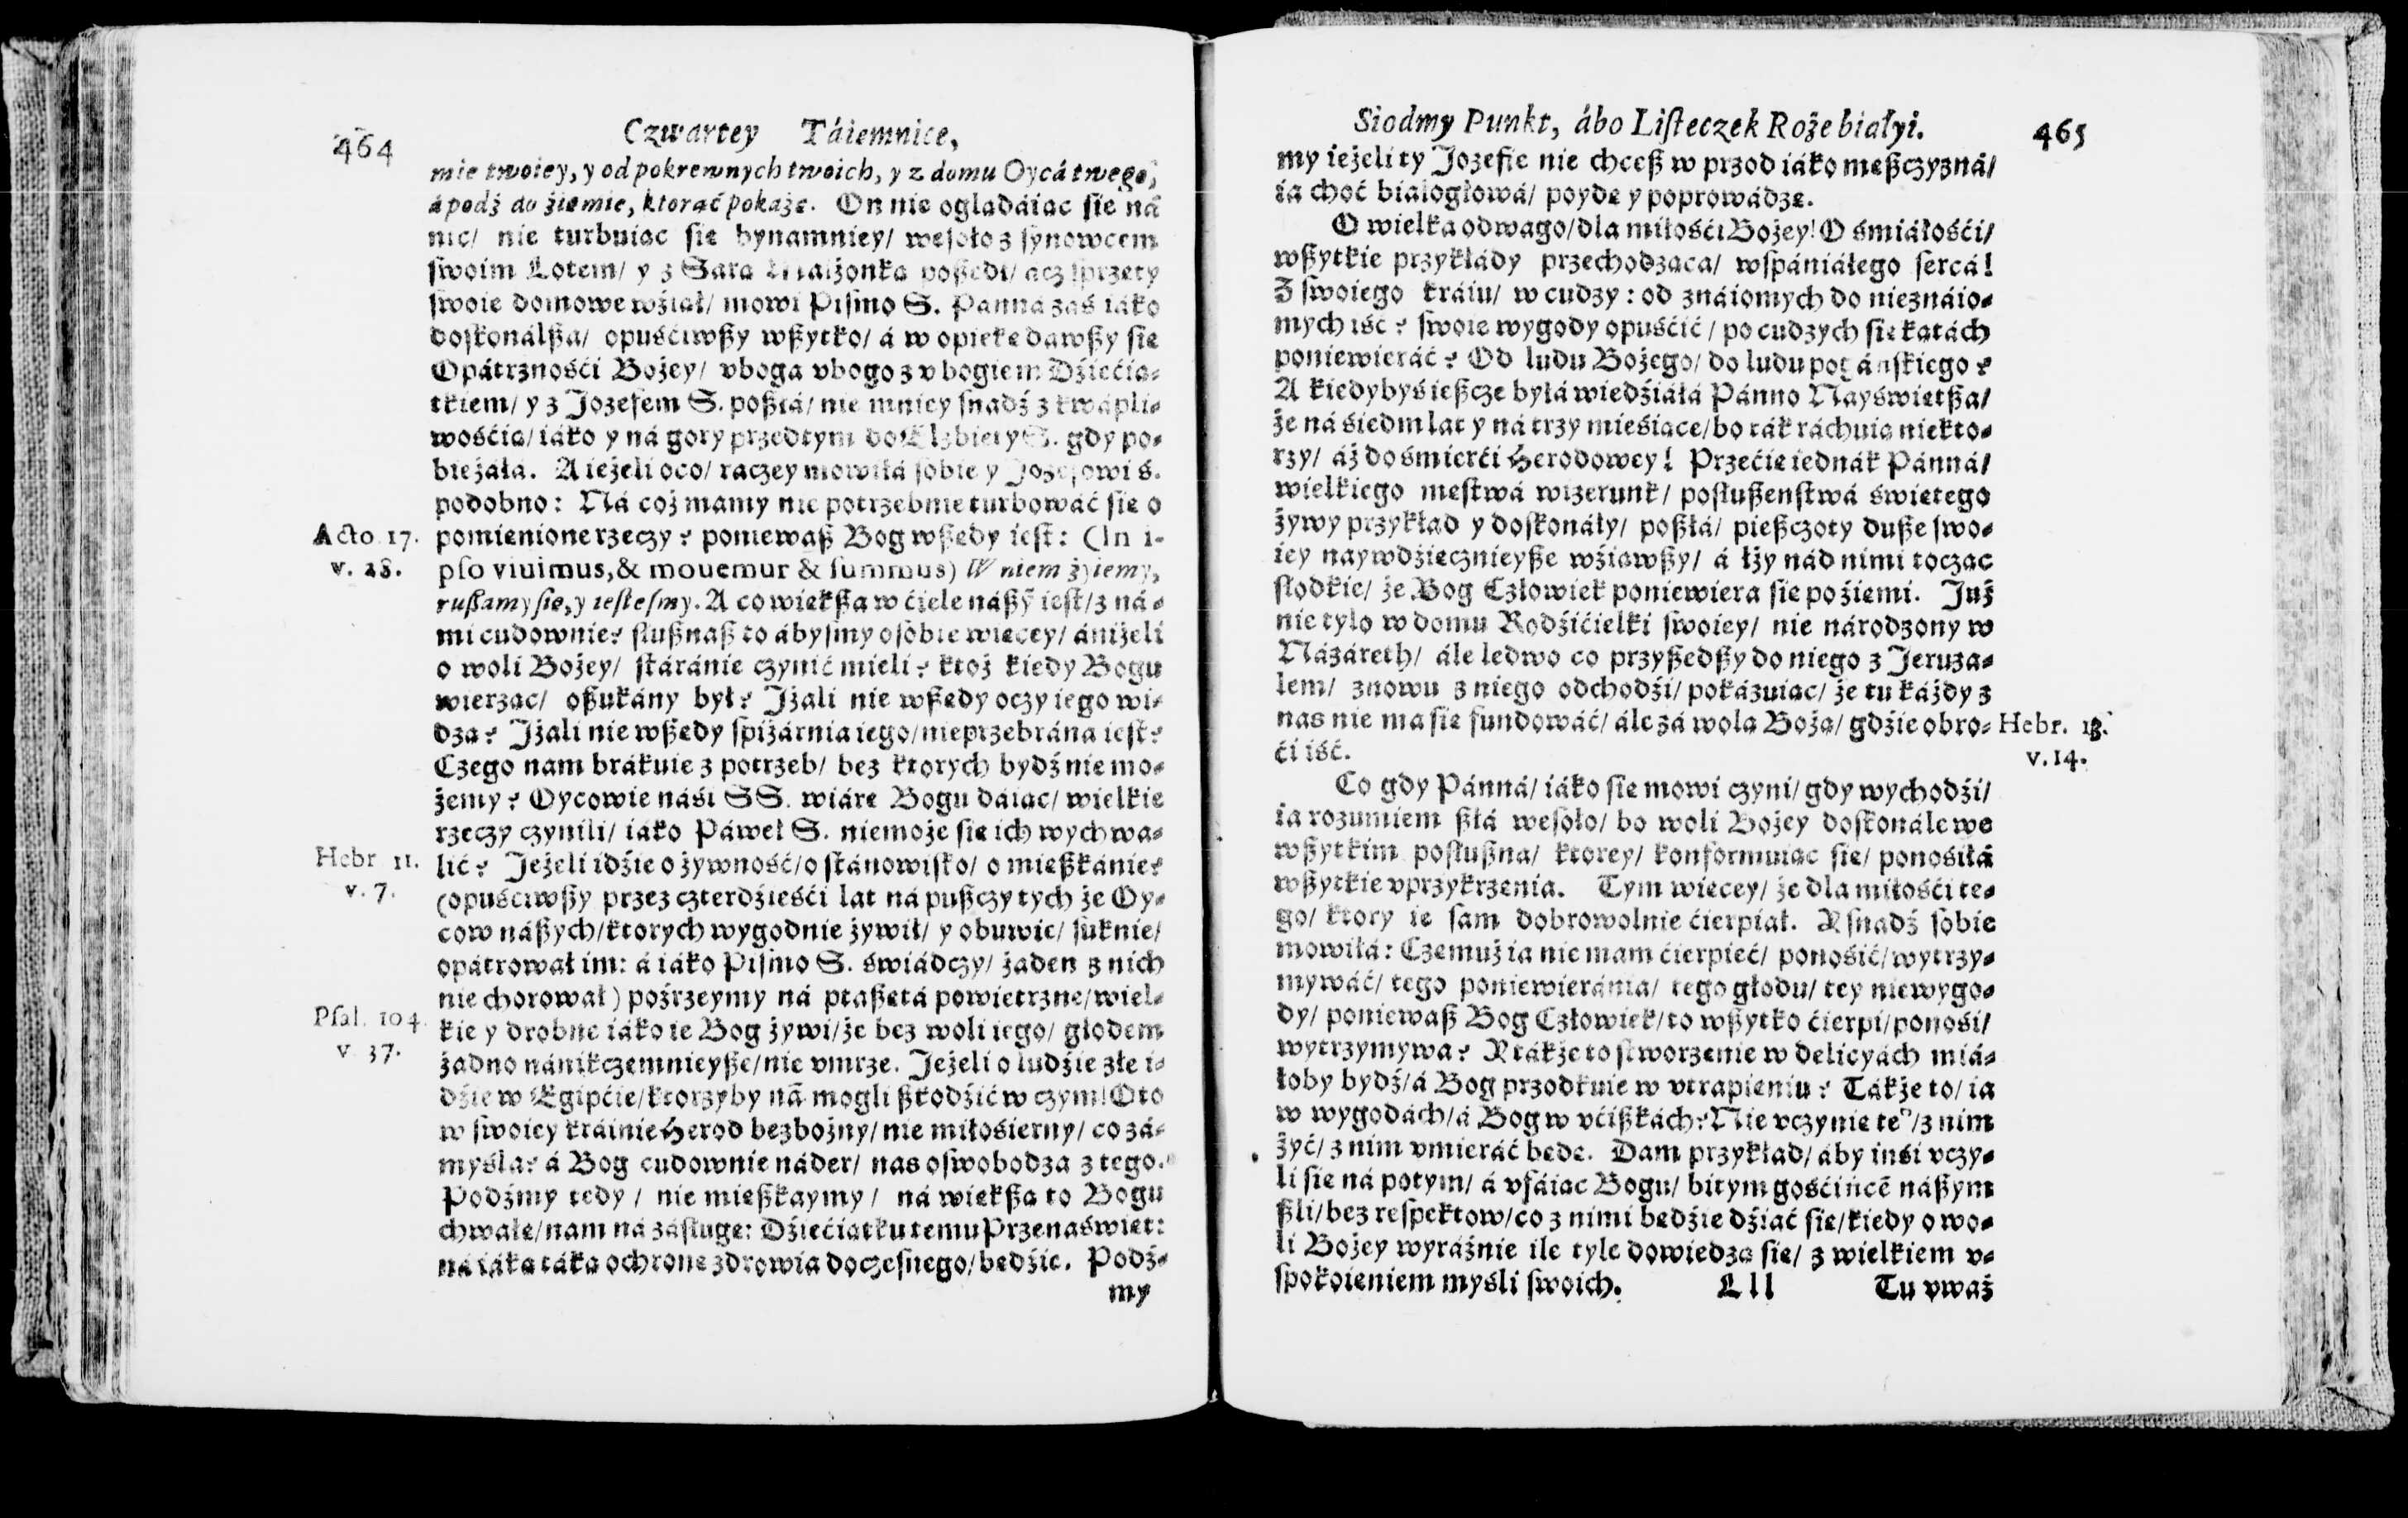 464
Czwartey Táiemnice,
mie twoiey, y od pokrewnych twoich, y z domu Oycá twego,
á podź do źiemie, ktorać pokażę. On nie oglądáiąc się ná
nic/ nie turbuiąc się bynamniey/ wesoło z synowcem
swoim Lotem/ y z Sarą Małżonką poßedł/ ácz sprzęty
swoie domowe wźiął/ mowi Pismo S. Pánná zaś iáko
doskonálßa/ opuśćiwßy wßytko/ á w opiekę dawßy się
Opátrznośći Bożey/ vboga vbogo z vbogiem Dźiećią-
tkiem/ y z Jozefem S. poßłá/ nie mniey snadź z kwápli-
wośćią/ iáko y ná gory przedtym do Elzbiety S. gdy po-
bieżáłá. A ieżeli oco/ raczey mowiłá sobie y Jozefowi S.
podobno: Ná coż mamy niepotrzebnie turbowáć się o
Acto. 17.
v. 28.
pomienione rzeczy? poniewaß Bog wßędy iest: (In i-
pso viuimus, & mouemur & summus) W niem żyiemy,
rußamy się, y iestesmy. A co większa w ćiele náßỹ iest/ z ná-
mi cudownie? słußnaß to ábysmy o sobie więcey/ ániżeli
o woli Bożey/ stáránie czynić mieli? ktoż kiedy Bogu
wierząc/ oßukány był? Jżali nie wßędy oczy iego wi-
dzą? Jżali nie wßędy spiżárnia iego/ nieprzebrána iest?
Czego nam brákuie z potrzeb/ bez ktorych bydź nie mo-
żemy? Oycowie náśi SS. wiárę Bogu dáiąc/ wielkie
rzeczy czynili/ iáko Páweł S. niemoże się ich wychwa-
Hebr. 11.
v. 7.
lić? Jeżeli idźie o żywność/ o stánowisko/ o mießkánie?
(opuśćiwßy przez czterdźieśći lat ná pußczy tych że Oy-
cow náßych/ ktorych wygodnie żywił/ y obuwie/ suknie/
opátrował im: á iáko Pismo S. świádczy/ żaden z nich
nie chorował) poźrzeymy ná ptaßętá powietrzne/ wiel-
Psal. 104.
v. 37.
kie y drobne iáko ie Bog żywi/ że bez woli iego/ głodem
żadno nánikczemnieyße/ nie vmrze. Jeżeli o ludźie złe i-
dźie w Egipćie/ ktorzyby nã mogli ßkodźić w czym! Oto
w swoiey kráinie Herod bezbożny/ nie miłosierny/ co zá-
myśla? á Bog cudownie náder/ nas oswobodza z tego.
Podźmy tedy/ nie mießkaymy/ ná większą to Bogu
chwałę/ nam ná zasługę: Dźiećiątku temu Przenaświęt:
ná iáką táką ochronę zdrowia doczesnego/ będźie. Podź-
my
Siodmy Punkt, ábo Listeczek Roże białyi.
465
my ieżeli ty Jozefie nie chceß w przod iáko męßczyzná/
ia choć białogłowá/ poydę y poprowádzę.
O wielka odwago/ dla miłośći Bożey! O śmiáłośći/
wßytkie przykłády przechodząca/ wspániáłego sercá!
Z swoiego kráiu/ w cudzy: od znáiomych do nieznáio-
mych iść? swoie wygody opuśćić/ po cudzych się kątách
poniewieráć? Od ludu Bożego/ do ludu pogáńskiego?
A kiedybyś ießcze byłá wiedźiáłá Pánno Nayświętßa/
że ná śiedm lat y ná trzy mieśiące/ bo ták ráchuią niekto-
rzy/ áż do śmierći Herodowey! Przećię iednák Pánná/
wielkiego męstwá wizerunk/ poslußeństwá świętego
żywy przykład y doskonáły/ poßłá/ pießczoty duße swo-
iey naywdźięcznieyße wźiąwßy/ á łzy nád nimi tocząc
słodkie/ że Bog Człowiek poniewiera się po źiemi. Już
nie tylo w domu Rodźićielki swoiey/ nie národzony w
Názáreth/ ále ledwo co przyßedßy do niego z Jeruza-
lem/ znowu z niego odchodźi/ pokázuiąc/ że tu káżdy z
nas nie ma się fundowáć/ ále zá wolą Bożą/ gdźie obro-
Hebr. 13.
v. 14.
ći iść.
Co gdy Pánná/ iáko się mowi czyni/ gdy wychodźi/
ia rozumiem ßłá wesoło/ bo woli Bożey doskonále we
wßytkim poslußna/ ktorey/ konformuiąc się/ ponośiłá
wßytkie vprzykrzenia. Tym więcey/ że dla miłośći te-
go/ ktory ie sam dobrowolnie ćierpiał. A snadź sobie
mowiłá: Czemuż ia nie mam ćierpieć/ ponośić/ wytrzy-
mywáć/ tego poniewieránia/ tego głodu/ tey niewygo-
dy/ poniewaß Bog Człowiek/ to wßytko ćierpi/ ponośi/
wytrzymywa? A tákże to stworzenie w delicyách miá-
łoby bydź/ á Bog przodkuie w vtrapieniu? Tákże to/ ia
w wygodách/ á Bog w vćißkách? Nie vczynię teº/ z nim
żyć/ z nim vmieráć będę. Dam przykład/ áby inśi vczy-
li się ná potym/ á vfáiąc Bogu/ bitym gośćińcẽ náßym
ßli/ bez respektow/ co z nimi będźie dźiać się/ kiedy o wo-
li Bożey wyráźnie ile tyle dowiedzą się/ z wielkiem v-
spokoieniem myśli swoich.
Lll
Tu vważ